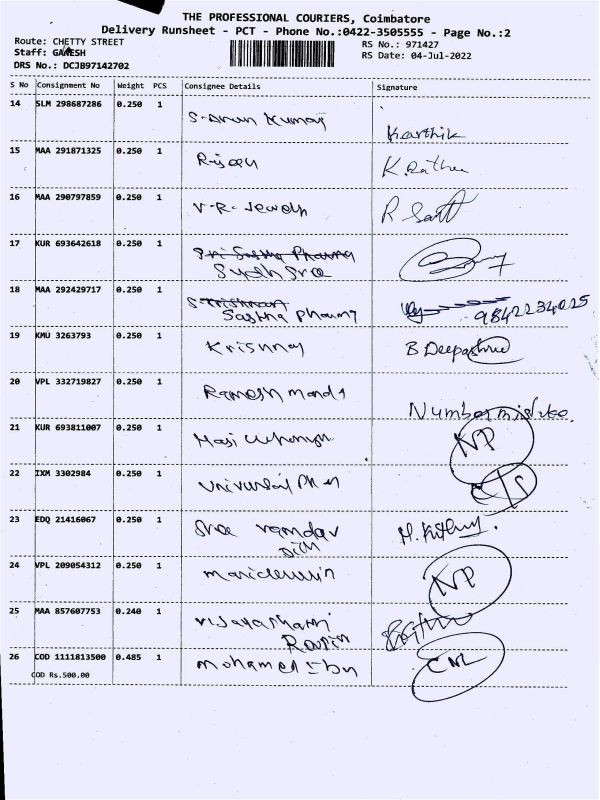 THE PROFESSIONAL COURIERS, Coimbatore
Delivery Runsheet - PCT - Phone No.:0422-3505555 - Page No.:2
Route: CHETTY STREET
RS No.: 971427
Staff: GANESH
RS Date: 04-Jul-2022
DRS No.: DCJB97142702
S No Consignment No Weight PCS Consignee Details Signature
14 SLM 298687286 0.250 1 S-Arun Kumar Karthik
15 MAA 291871325 0.250 1 K.
16 MAA 290797859 0.250 1 V-R- Jewels R
17 KUR 693642618 0.250 1 Sri Sastha Pharma
Sudh Sree
18 MAA 292429717 0.250 1 S-Krishnan
Sastha Pharmy 9842234025
19 KMU 3263793 0.250 1 Krishnay B Deepashree
20 VPL 332719827 0.250 1 Ramesh Number mistake.
21 KUR 693811007 0.250 1 NP
22 IXM 3302984 0.250 1
23 EDQ 21416067 0.250 1 Sree ramdav
24 VPL 209054312 0.250 1 NP
25 MAA 857607753 0.240 1
26 COD 1111813500 0.485 1 Mohamed Ibu CNL
COD Rs.500.00